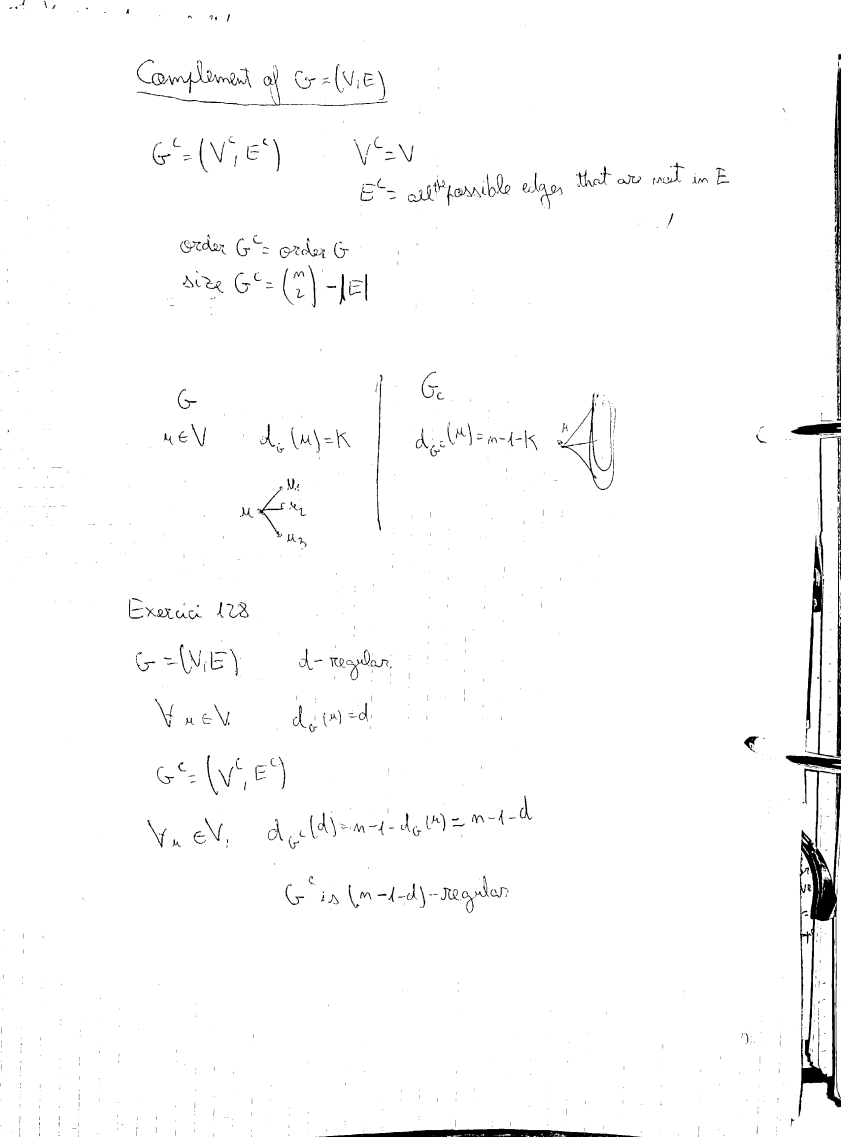 Complement of G=(V,E)
G^c=(V^c, E^c) V^c=V
E^c= all the possible edges that are not in E
order G^c= order G
size G^c= (n 2) -|E|
G G_c
u∈V d_G(u)=K d_G^c(u)=n-1-K u
u u_1
u_2
u_3
Exercici 128
G=(V,E) d-regular.
∀u∈V. d_G(u)=d
G^c=(V^c, E^c)
∀u∈V, d_G^c(d)=n-1-d_G(u)=n-1-d
G^c is (n-1-d)-regular.